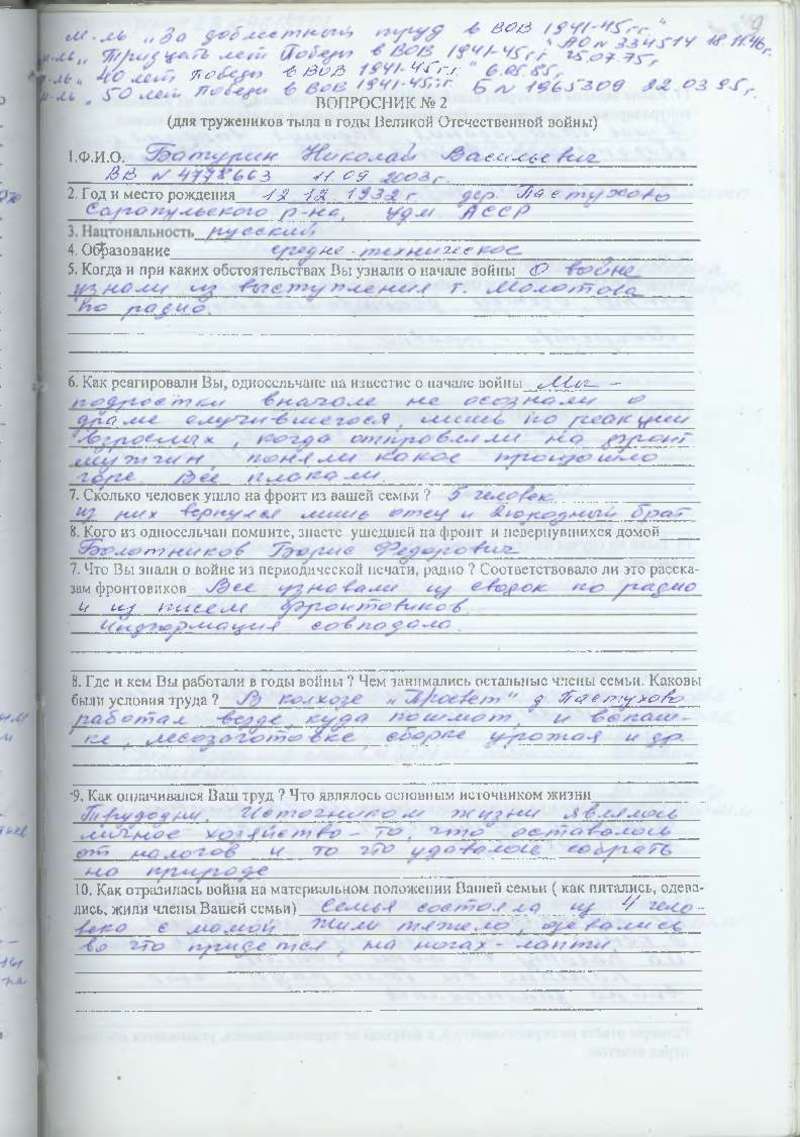 м-ль „За доблестный труд в ВОВ 1941-45 гг."
м-ль „Тридцать лет Победы в ВОВ 1941-45гг" АО № 334514 18.11.46г.
25.07.75г.
м-ль „40 лет Победы в ВОВ 1941-45г.г." 6.05.85г.
м-ль „50 лет Победы в ВОВ 1941-45г.г. Б № 1965309 22.03.95г.
ВОПРОСНИК № 2
(для тружеников тыла в годы Великой Отечественной войны)
1.Ф.И.О. Батурин Николай Васильевич
ВВ № 4778663 11 09 2003г.
2. Год и место рождения 12 12 1932г. дер. Пастухово
Сарапульского р-на, Удм АССР
3. Нацтональность русский
4. Образование средне-техническое
5. Когда и при каких обстоятельствах Вы узнали о начале войны О войне
узнали из выступления т. Молотова
по радио.
6. Как реагировали Вы, односельчане на известие о начале войны Мы -
подростки вначале не осознали о
драме случившегося, лишь по реакции
взрослых, когда отправляли на фронт
мужчин, поняли какое произошло
горе. Все плакали.
7. Сколько человек ушло на фронт из вашей семьи ? 5 человек
из них вернулся лишь отец и двоюродный брат
8. Кого из односельчан помните, знаете ушедшей на фронт и невернувшихся домой
Болотников Борис Федорович
7. Что Вы знали о войне из периодической печати, радио ? Соответствовало ли это расска-
зам фронтовиков Все узнавали из сводок по радио
и из писем фронтовиков.
Информация совпадала.
8. Где и кем Вы работали в годы войны ? Чем занимались остальные члены семьи. Каковы
были условия труда ? В колхозе „Просвет" д Пастухово
работал везде, куда пошлют, и вспаш-
ке, лесозаготовке, сборке урожая и др.
9. Как оплачивался Ваш труд ? Что являлось основным источником жизни
Трудодни. Источником жизни являлось
личное хозяйство - то, что оставалось
от налогов и то что удавалось собрать
на природе
10. Как отразилась война на материальном положении Вашей семьи ( как питались, одева-
лись, жили члены Вашей семьи) Семья состояла из 4 чело-
века с мамой Жили тяжело, одевались
во что придется, на ногах - лапти.